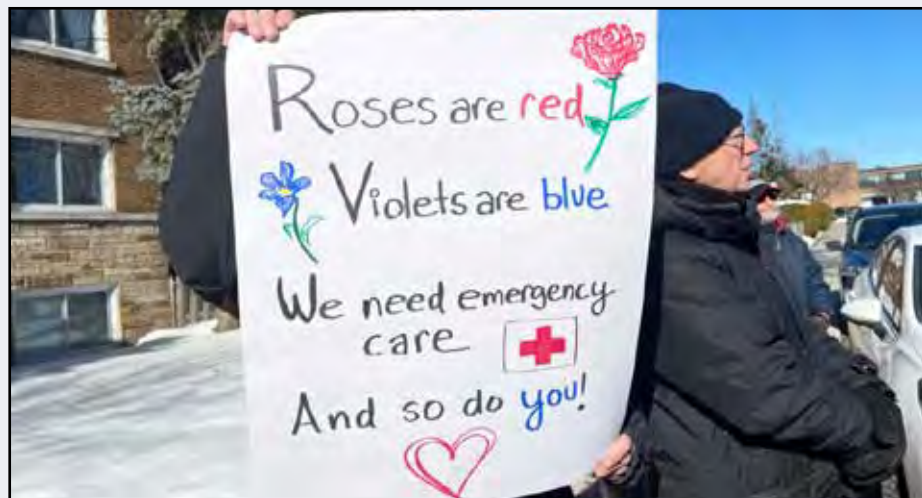 Roses are red
Violets are blue
We need emergency
care
And so do you!